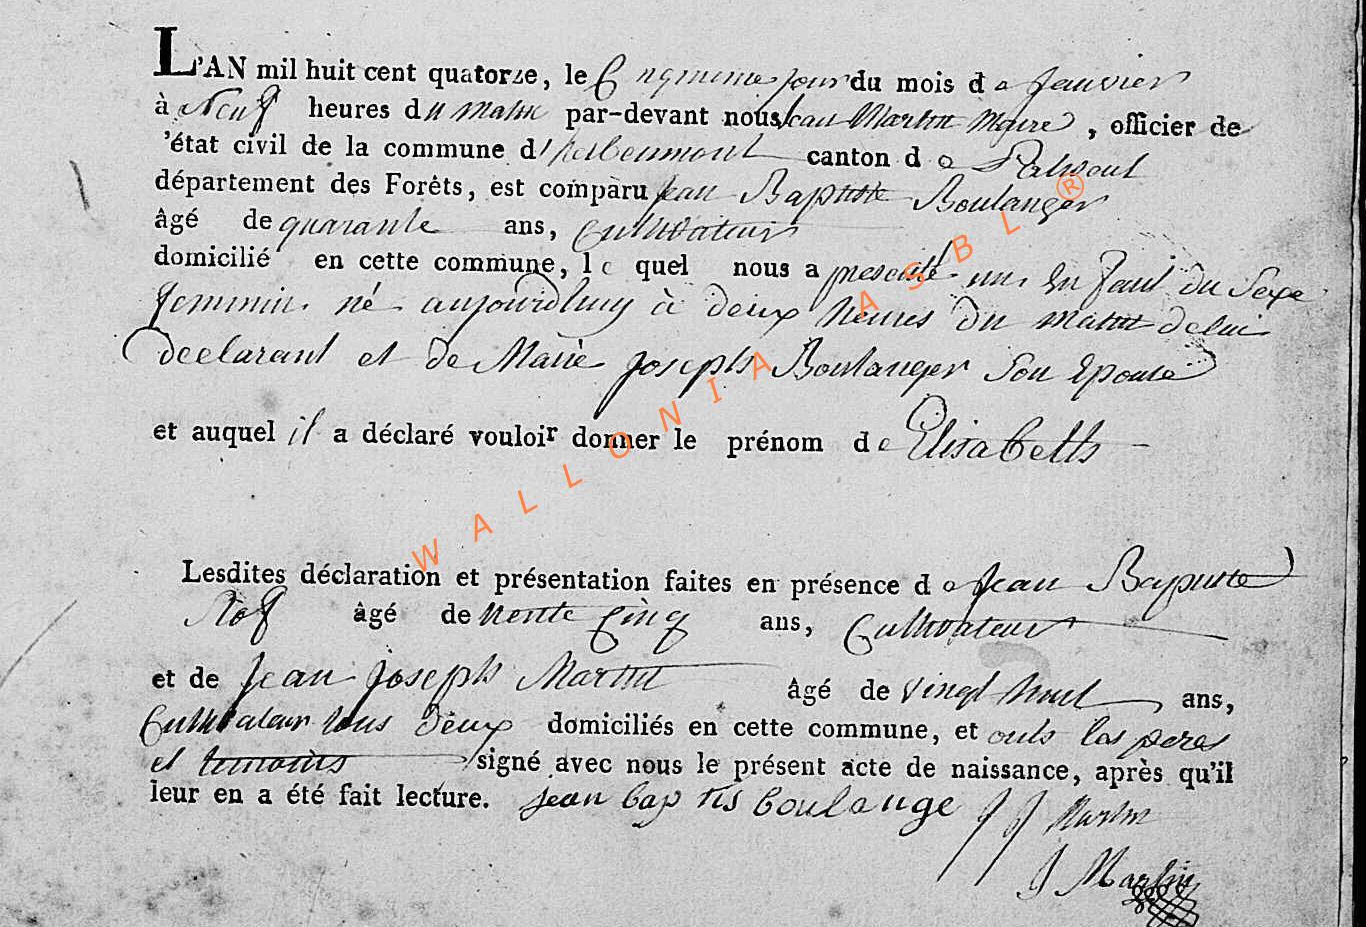 L'AN mil huit cent quatorze, le Cinquieme jour du mois de Janvier
à Neuf heures du matin par-devant nous Jean Martin Maire, officier de
'état civil de la commune d'herbeumont canton de Paliseul
département des Forêts, est comparu Jean Baptiste Boulanger
âgé de quarante ans, Cultivateur
domicilié en cette commune, le quel nous a presenté un Enfant du Sexe
feminin né aujourdhuy à deux heures du matin de lui
declarant et de Marie Joseph Boulanger Son Epouse
et auquel il a déclaré vouloir donner le prénom de Elisabeth
Lesdites déclaration et présentation faites en présence de Jean Baptiste
âgé de trente Cinq ans, Cultivateur
et de Jean Joseph Martin âgé de vingt huit ans,
Cultivateur tous deux domiciliés en cette commune, et onts les peres
et temoins signé avec nous le présent acte de naissance, après qu'il
leur en a été fait lecture. jean baptis boulange J J Martin
J Martin
WALLONIA ASBL ®